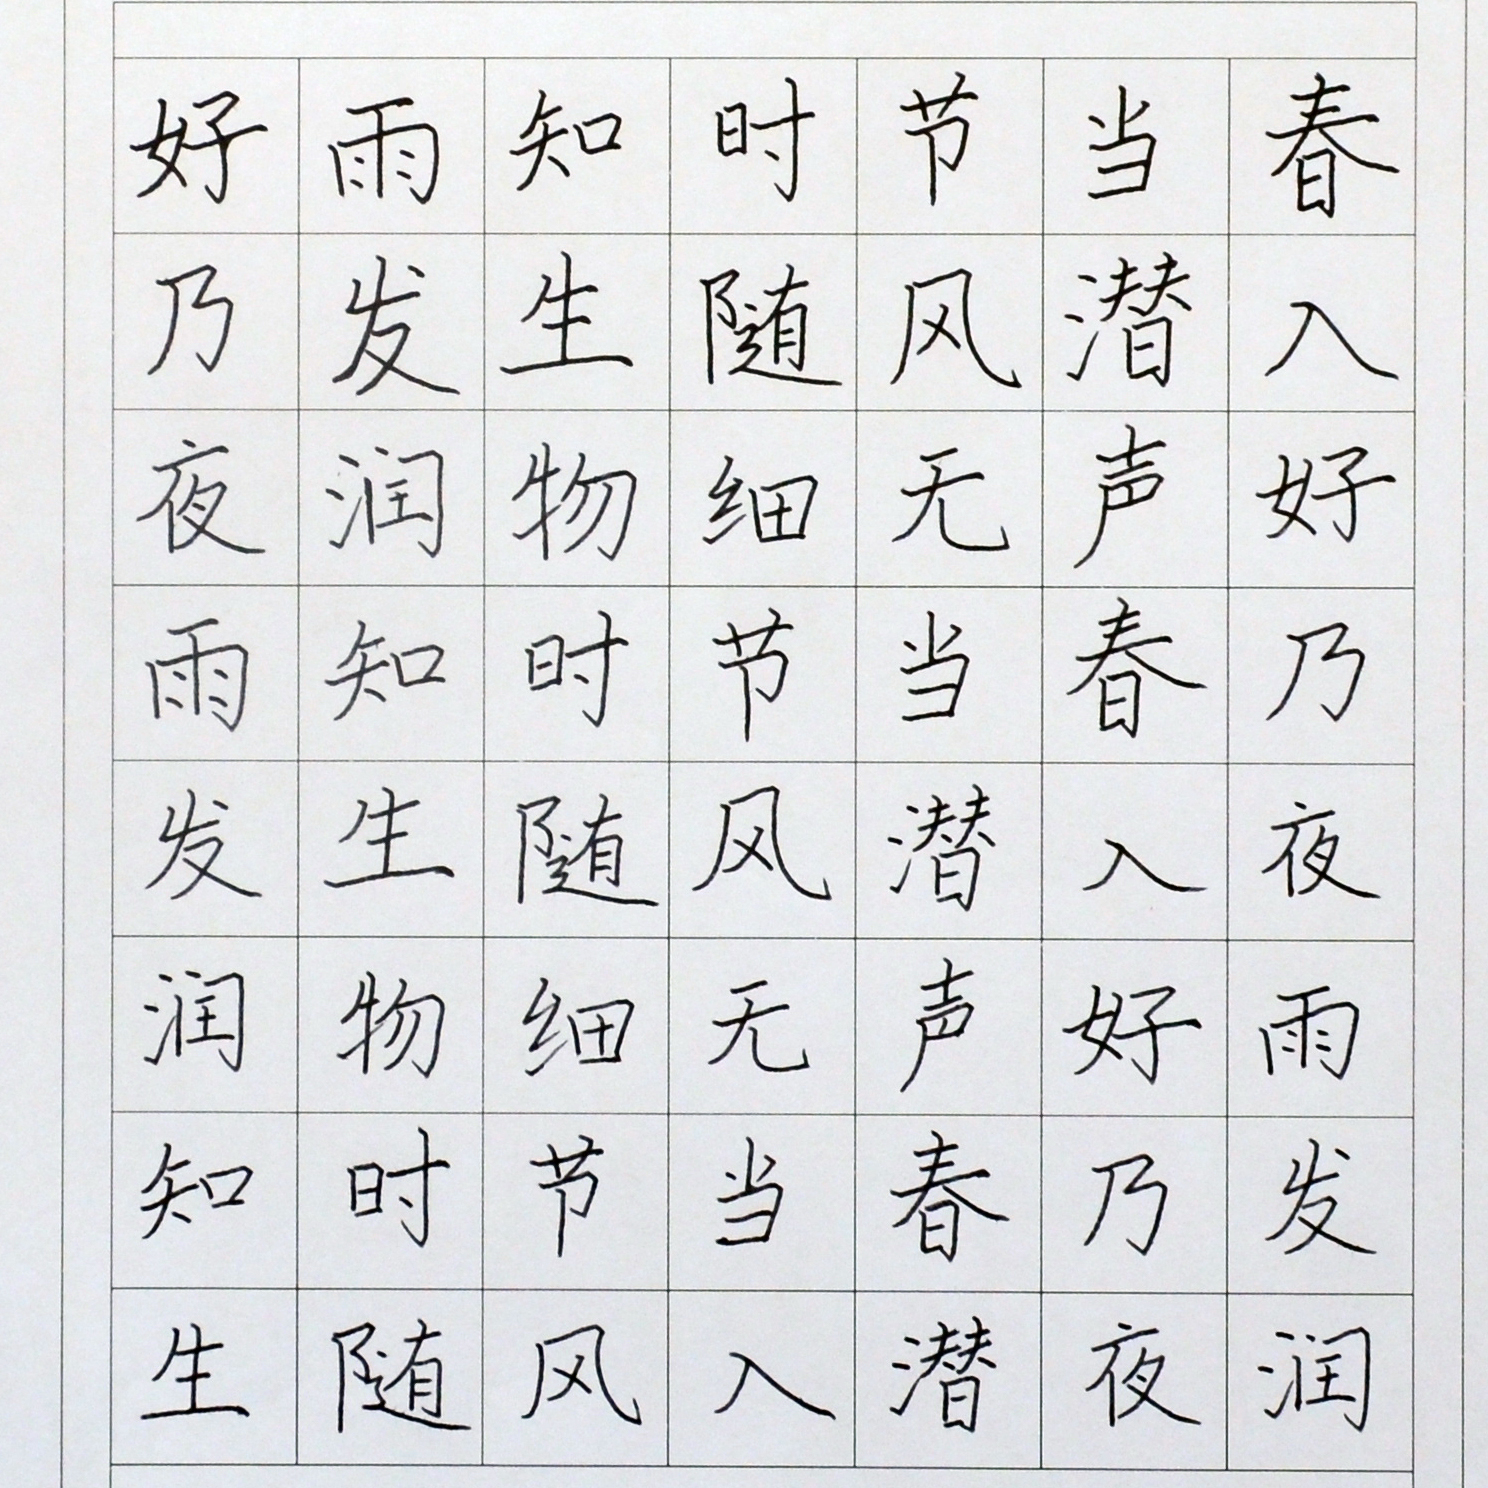 好雨知时节当春
乃发生随风潜入
夜润物细无声好
雨知时节当春乃
发生随风潜入夜
润物细无声好雨
知时节当春乃发
生随风入潜夜润